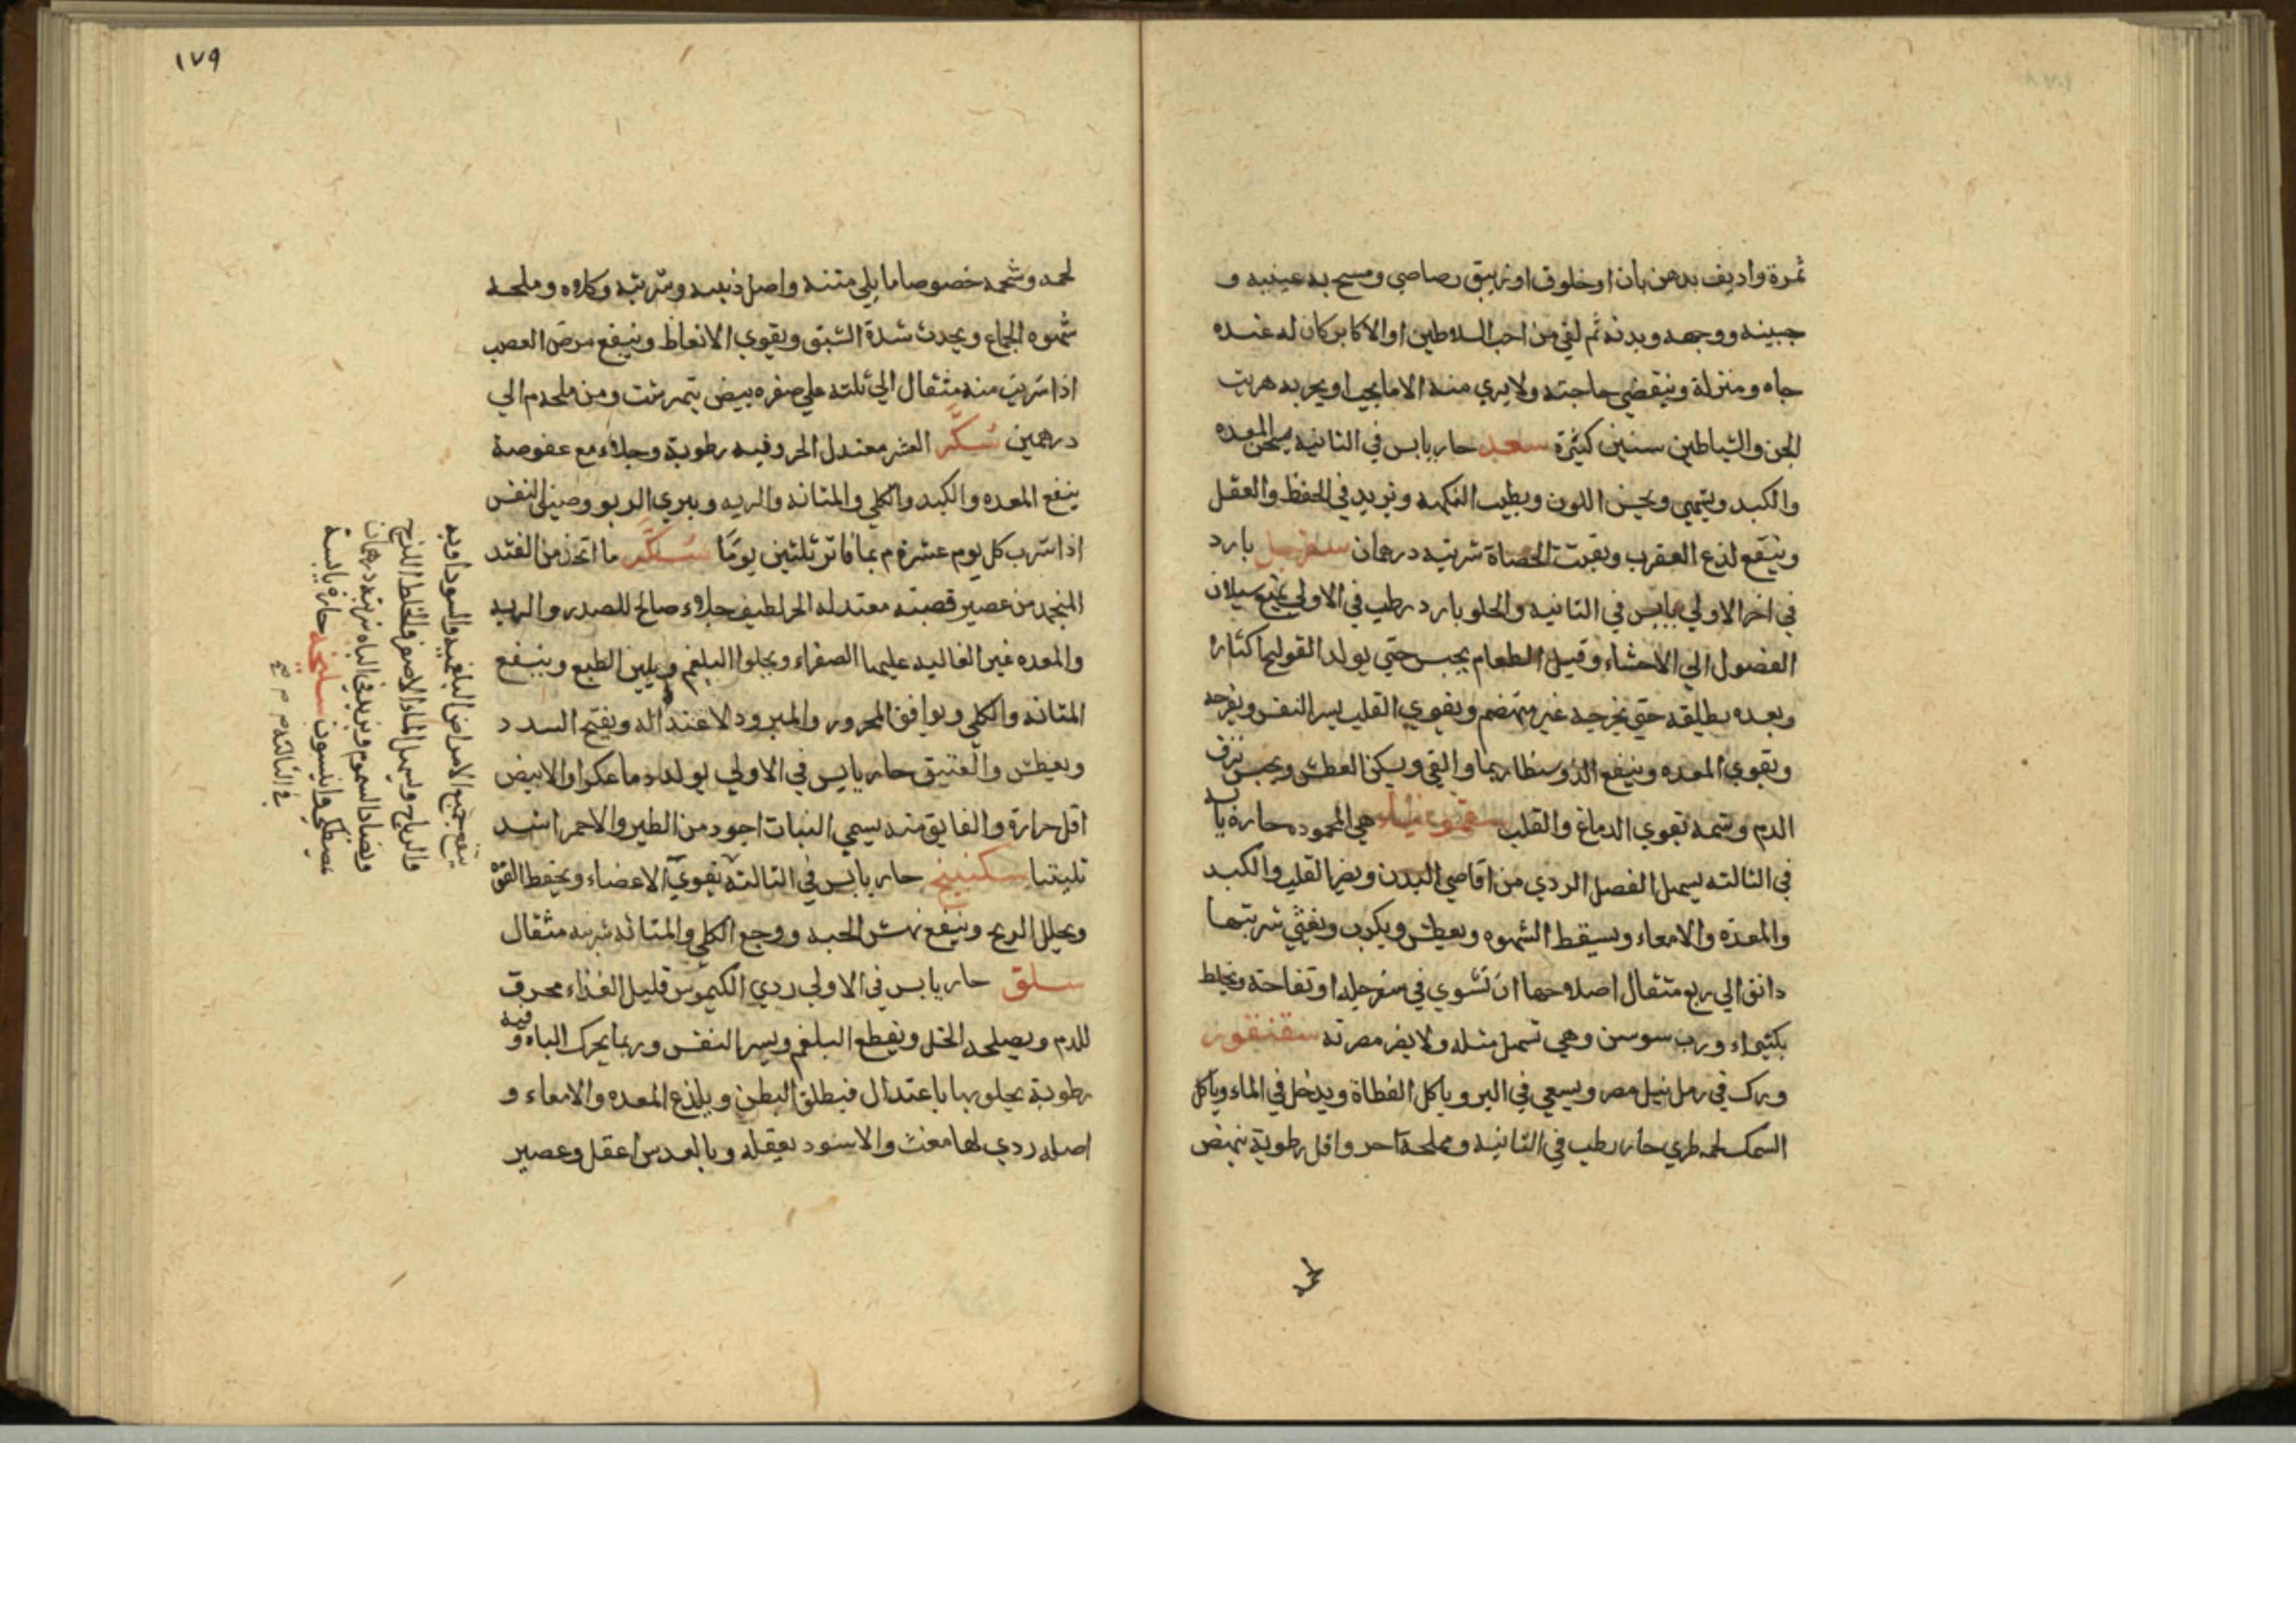 ثمرة واديف بدهن بان او خلوق او زيبق رصاصي ومسح به عينيه و
جبينه ووجهه وبدنه ثم لقي من احب السلاطين او الاكابر كان له عنده
جاه ومنزلة وينقضي حاجته ولا يري منه الا ما يحب او يحربه هربت
الجن والشياطين سنين كثيرة سعد حار يابس في الثانيه يسخن المعده
والكبد ويشهي ويحسن اللون ويطيب النكهه ويزيد في الحفظ والعقل
وينفع لذع العقرب ويفتت الحصاة شربته درهمان سفرجل بارد
في اخر الاولي يابس في الثانيه والحلو بارد رطب في الاولي يمنع سيلان
الفضول الي الاحشاء وقبل الطعام يحبس حتي يولد القولنج اكثاره
وبعده يطلقه حتي يخرجه غير منهضم ويقوي القلب يسر النفس ويفرحه
ويقوي المعده وينفع الذوسنطاريا والقي ويسكن العطش ويحبس نزف
الدم وشمه تقوي الدماغ والقلب سقمونياء هي المحموده حارة يابسه
في الثالثه يسهل الفصل الردي من اقاصي البدن ويضر القلب والكبد
والمعدة والامعاء ويسقط الشهوه ويعطش ويكرب ويغثي شربتها
دانق الي ربع مثقال اصلاحها ان تشوي في سفرجله او تفاحة ويخلط
بكثيراء ورب سوسن وهي تسهل مثله ولا يضر مضرته سقنقور
ورك في رمل نيل مصر ويسعي في البر وياكل القطاة ويدخل في الماء وياكل
السمك لحمه طري حار رطب في الثانيه ومملحه احر واقل رطوبة ينهض
لحمه
١٧٩
لحمه وشحمه خصوصا ما يلي متنه واصل ذنبه وسرته وكلاوه وملحه
شهوه الجماع ويحدث شدة الشبق ويقوي الانعاظ وينفع مرض العصب
اذا شرب منه مثقال الي ثلثه علي صفره بيض نيمرشت ومن ملحه م الي
درهمين سكر العشر معتدل الحر وفيه رطوبة وجلاء مع عفوصة
ينفع المعده والكبد والكلي والمثانه والريه ويبري الربو وضيق النفس
اذا شرب كل يوم عشرة م بماء فاتر ثلثين يوما سكر ما اتخذ من القند
المنجمد من عصير قصبته معتدله الحر لطيف جلاوء صالح للصدر والريه
والمعده غير الغاليه عليها الصفراء ويجلوا البلغم ويلين الطبع وينفع
المثانه والكلي ويوافق المحرور والمبرود لاعتداله ويفتح السدد
ويعطش والعتيق حار يابس في الاولي يولد دما عكرا والابيض
اقل حرارة والفايق منه يسمي النبات اجود من الطير والاحمر اشد
تليينا سكبينج حار يابس في الثالثه يقوي الاعضاء ويحفظ القوة
ويحلل الريح وينفع نهش الحيه ووجع الكلي والمثانه شربته مثقال
سلق حار يابس في الاولي ردي الكيموس قليل الغذاء محرق
للدم ويصلحه الخل ويقطع البلغم ويسر النفس وربما يحرك الباه وفيه
رطوبة يجلو بها باعتدال فيطلق البطن ويلذع المعده والامعاء و
اصله ردي لها مغث والاسود يعقله وبالعدس اعقل وعصير
ينفع جميع الامراض البلغميه والسوداويه
والرياح ويسهل الماء الاصفر والخلط اللزج
ويضاد السموم ويزيد في الباه شربته درهمان
بمصطكي وانيسون سليخه حارة يابسة
في الثالثه م م